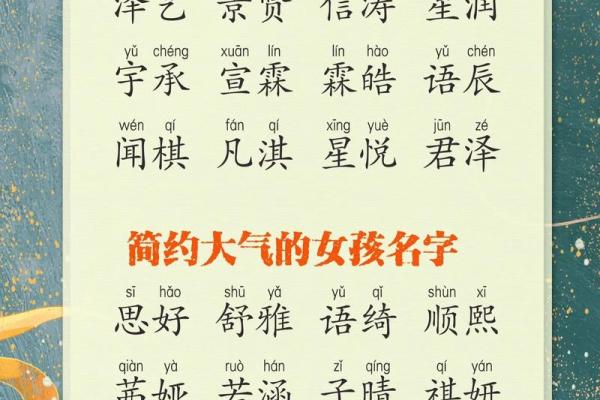 泽艺 景贤 信涛 星润
yǔ chéng xuān lín lín hào yǔ chén
宇承 宣霖 霖皓 语辰
wén qí fán qí xīng yuè jūn zé
闻棋 凡淇 星悦 君泽
简约大气的女孩名字
sī hǎo shū yǎ yǔ qǐ shùn xī
思好 舒雅 语绮 顺熙
qiàn yà ruò hán zǐ qíng qí yán
茜娅 若涵 子晴 祺妍